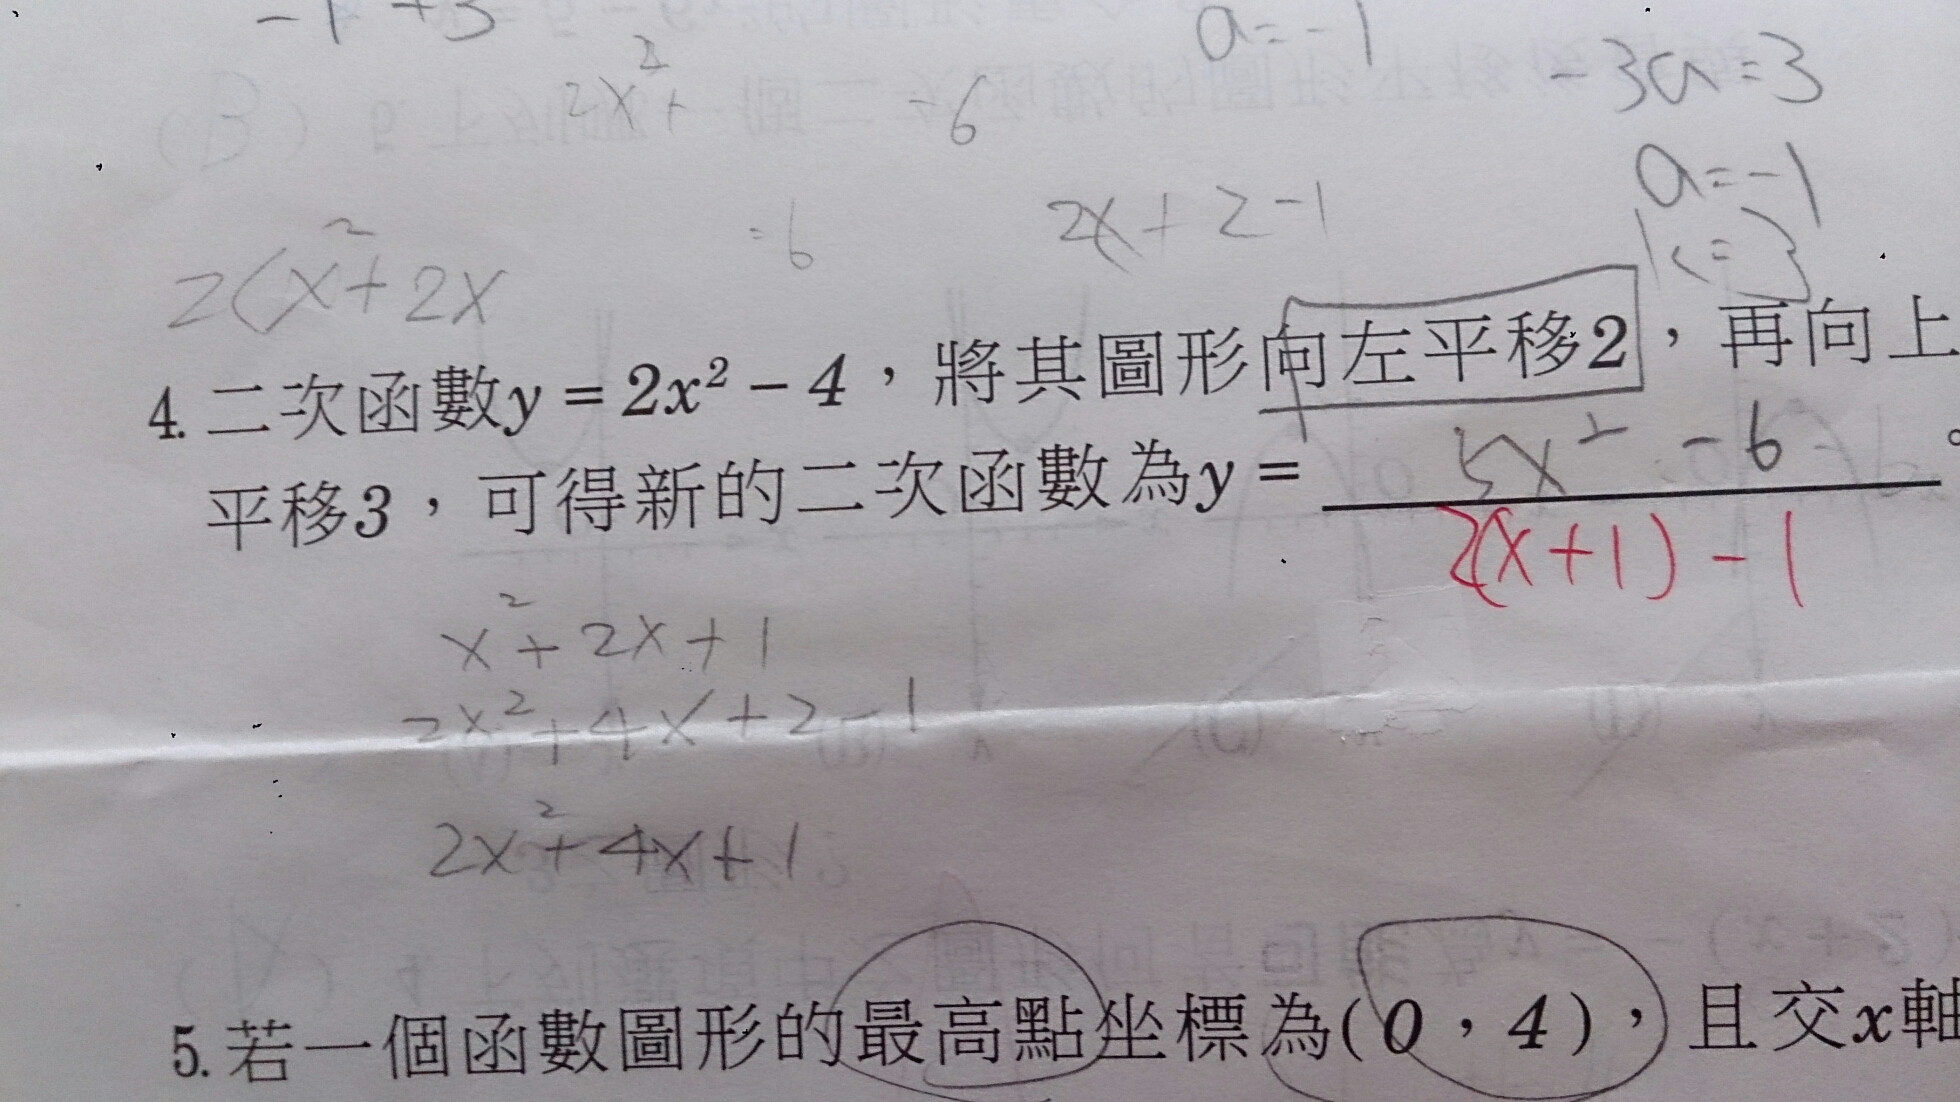 -1+3
a=-1
2x²+ -6
-3a=3
a=-1
=6
2x+2-1
k=3
2(x²+2x
4.二次函數y=2x²-4，將其圖形向左平移2，再向上
5x²-6
平移3，可得新的二次函數為y=＿＿＿＿。
2(x+1)-1
x²+2x+1
2x²+4x+2-1
2x²+4x+1
5.若一個函數圖形的最高點坐標為(0，4)，且交x軸